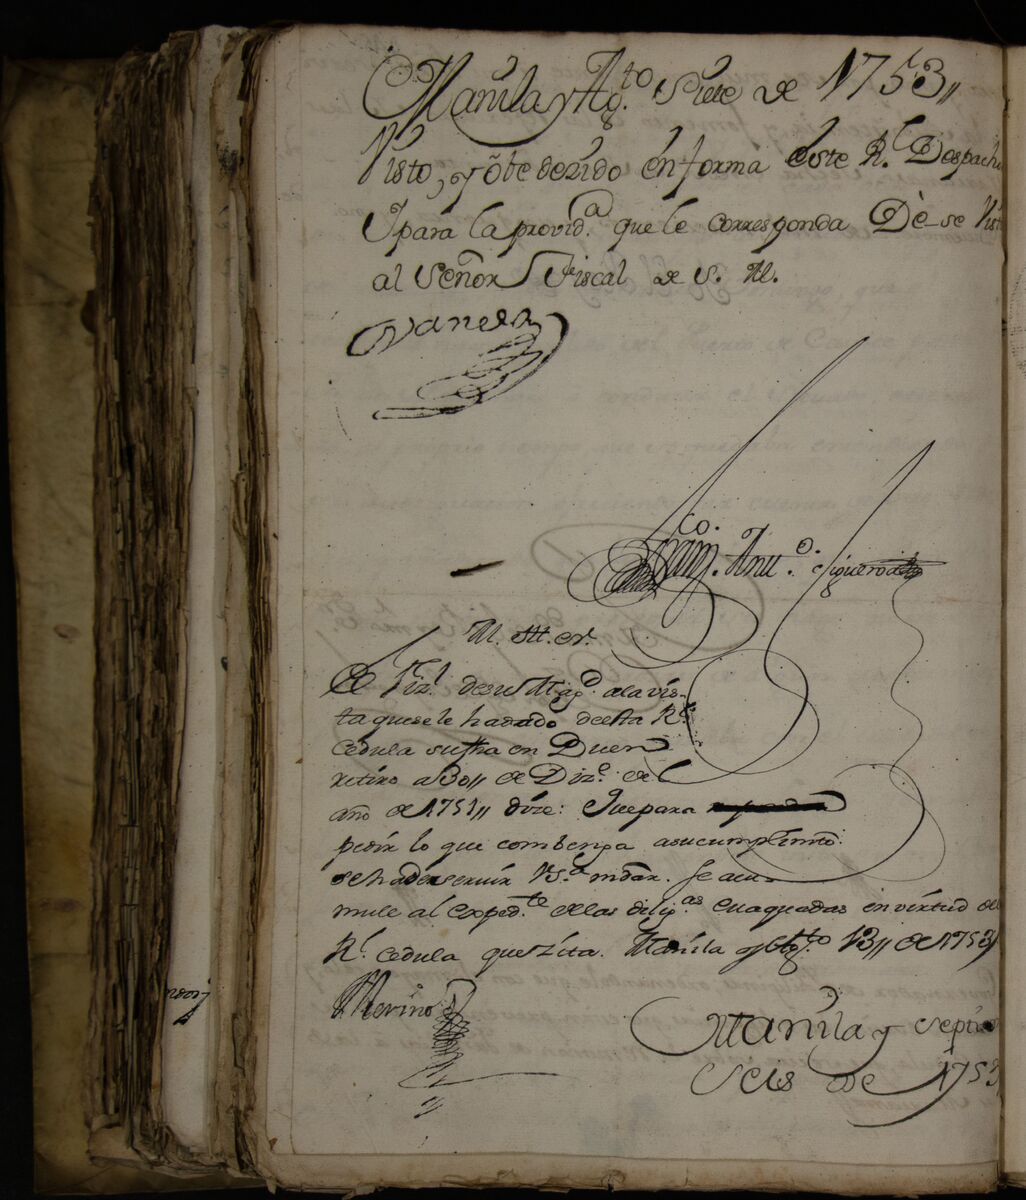 Manila y Ag.to Siete de 1753,,
Visto, y obedezido en forma este R.l Despacho
Y para la provid.a que le corresponda Dè-se Vist
al Señor Fiscal de S. M.
Fran.co Anu.o Figueroa
M. Ill. Sr.
El Fiz.l de su Mag.d a la vis-
ta que se le ha dado de esta R.l
Cedula su fha en Buen
retiro a 30,, de Diz.e del
año de 1751,, dize: Que para
pedir lo que combenga a su cumplimto.
se ha de servir VS.a mdar. se acu-
mule al exped.te de las dilig.as evaquadas en virtud de
R.l cedula que zita. Manila y Ag.to 13,, de 1753
Merino
Manila y Septi
Seis de 1753